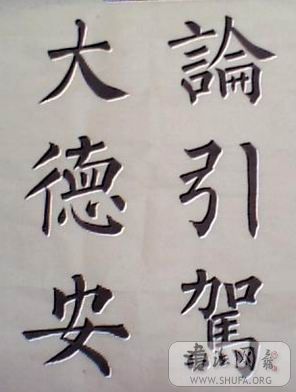 論引駕
大德安
書法网
WWW.SHUFA.ORG